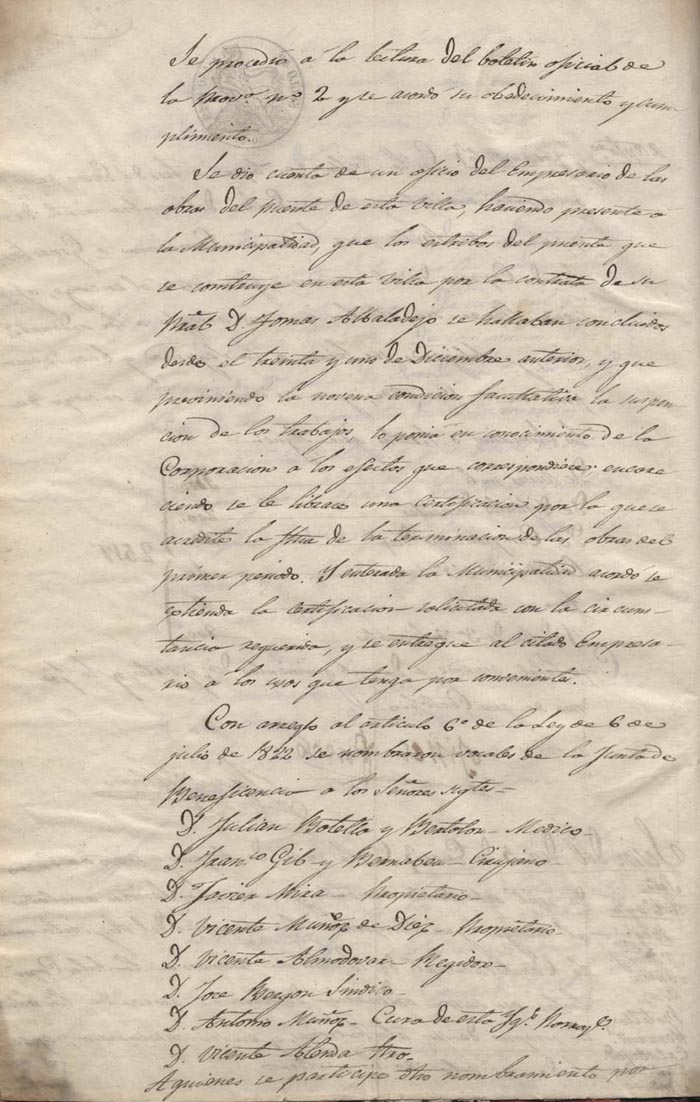 Se procedió á la lectura del boletin oficial de
la Prov.ª n.º 2 y se acordó su obedecimiento y cum
plimiento.
Se dió cuenta de un oficio del Empresario de las
obras del puente de esta villa, haciendo presente a
la Municipalidad, que los estribos del puente que
se construye en esta villa por la contrata de su
D. Tomas Albaladejo se hallaban concluidos
desde el treinta y uno de Diciembre anterior, y que
previniendo la novena condicion facultativa la suspen
cion de los trabajos, lo ponia en conocimiento de la
Corporacion a los efectos que correspondiere; encare
ciendo se le librace una certificacion por la que se
acredite la fha de la terminacion de las obras del
primer periodo. Y enterada la Municipalidad acordó se
extienda la certificacion solicitada con la circuns-
tancia requerida, y se entregue al citado Empresa-
rio a los usos que tenga por convenientes.
Con arreglo al articulo 6º de la Ley de 6 de
julio de 1822 se nombraron vocales de la Junta de
Beneficencia a los Señores sigtes—
D. Julian Botella y Bertolon - Medico
D. Franco Gil y Bernabeu - Cirujano -
D. Javier Mira - Propietario -
D. Vicente Muñoz de Diez - Propietario -
D. Vicente Almodovar - Regidor -
D. Jose Berzon Sindico -
D. Antonio Muñoz - Cura de esta Ygª Parroql.
D. Vicente Alenda Pro.
A quienes se participe dho nombramiento por